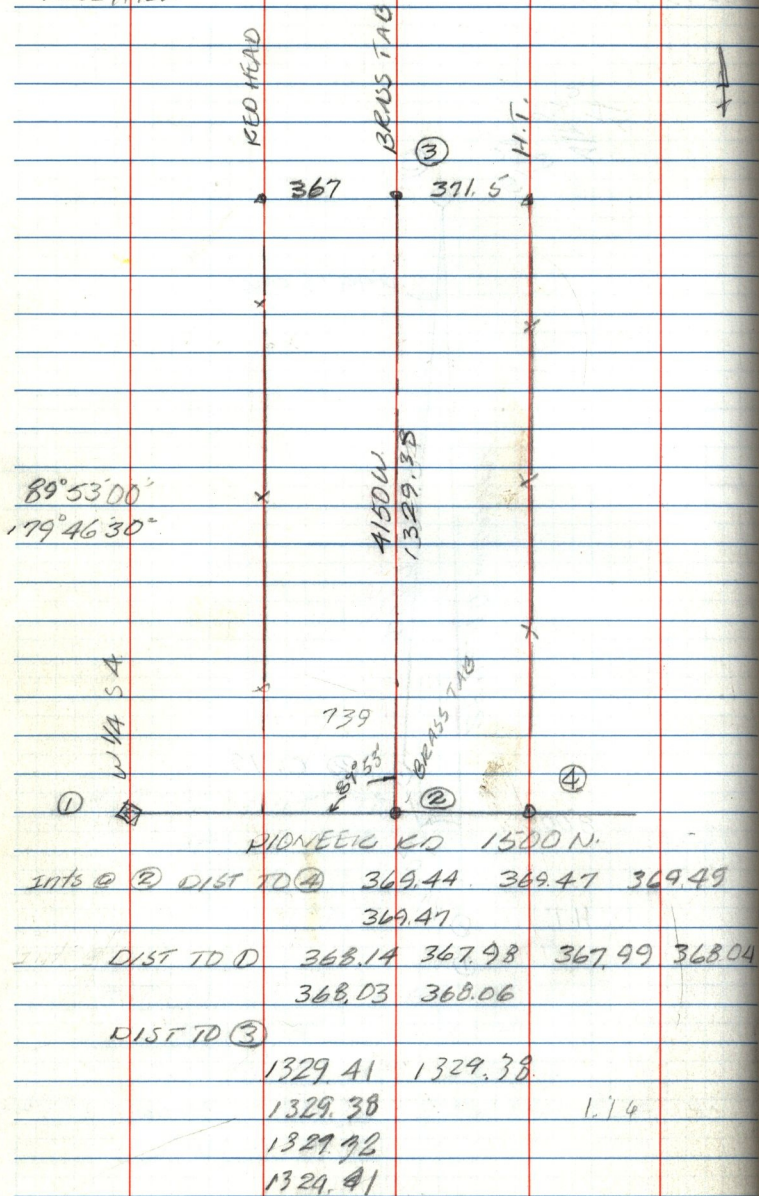 RED HEAD
BRASS TAB
H.T.
③
367 371.5
4150W.
1329.38
89°53'00"
179°46'30"
W 1/4 S 4
739
BRASS TAB
89°53'
① ② ④
PIONEER RD 1500 N.
Ints @ ② DIST TO ④ 369.44 369.47 369.49
369.47
DIST TO ① 368.14 367.98 367.99 368.04
368.03 368.06
DIST TO ③
1329.41 1329.38
1329.38 1.14
1329.32
1329.41